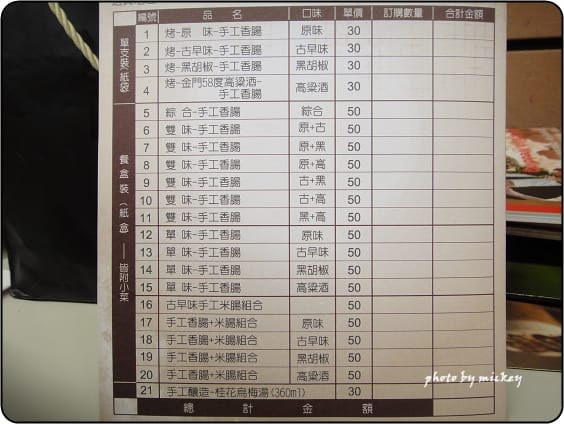 編號 品名 口味 單價 訂購數量 合計金額
單支裝/紙袋
1 烤-原 味-手工香腸 原味 30
2 烤-古早味-手工香腸 古早味 30
3 烤-黑胡椒-手工香腸 黑胡椒 30
4 烤-金門58度高粱酒-手工香腸 高粱酒 30
餐盒裝(紙盒——皆附小菜
5 綜 合-手工香腸 綜合 50
6 雙 味-手工香腸 原+古 50
7 雙 味-手工香腸 原+黑 50
8 雙 味-手工香腸 原+高 50
9 雙 味-手工香腸 古+黑 50
10 雙 味-手工香腸 古+高 50
11 雙 味-手工香腸 黑+高 50
12 單 味-手工香腸 原味 50
13 單 味-手工香腸 古早味 50
14 單 味-手工香腸 黑胡椒 50
15 單 味-手工香腸 高粱酒 50
16 古早味手工米腸組合 50
17 手工香腸+米腸組合 原味 50
18 手工香腸+米腸組合 古早味 50
19 手工香腸+米腸組合 黑胡椒 50
20 手工香腸+米腸組合 高粱酒 50
21 手工釀造-桂花烏梅湯(360ml) 30
總計金額
photo by mickey